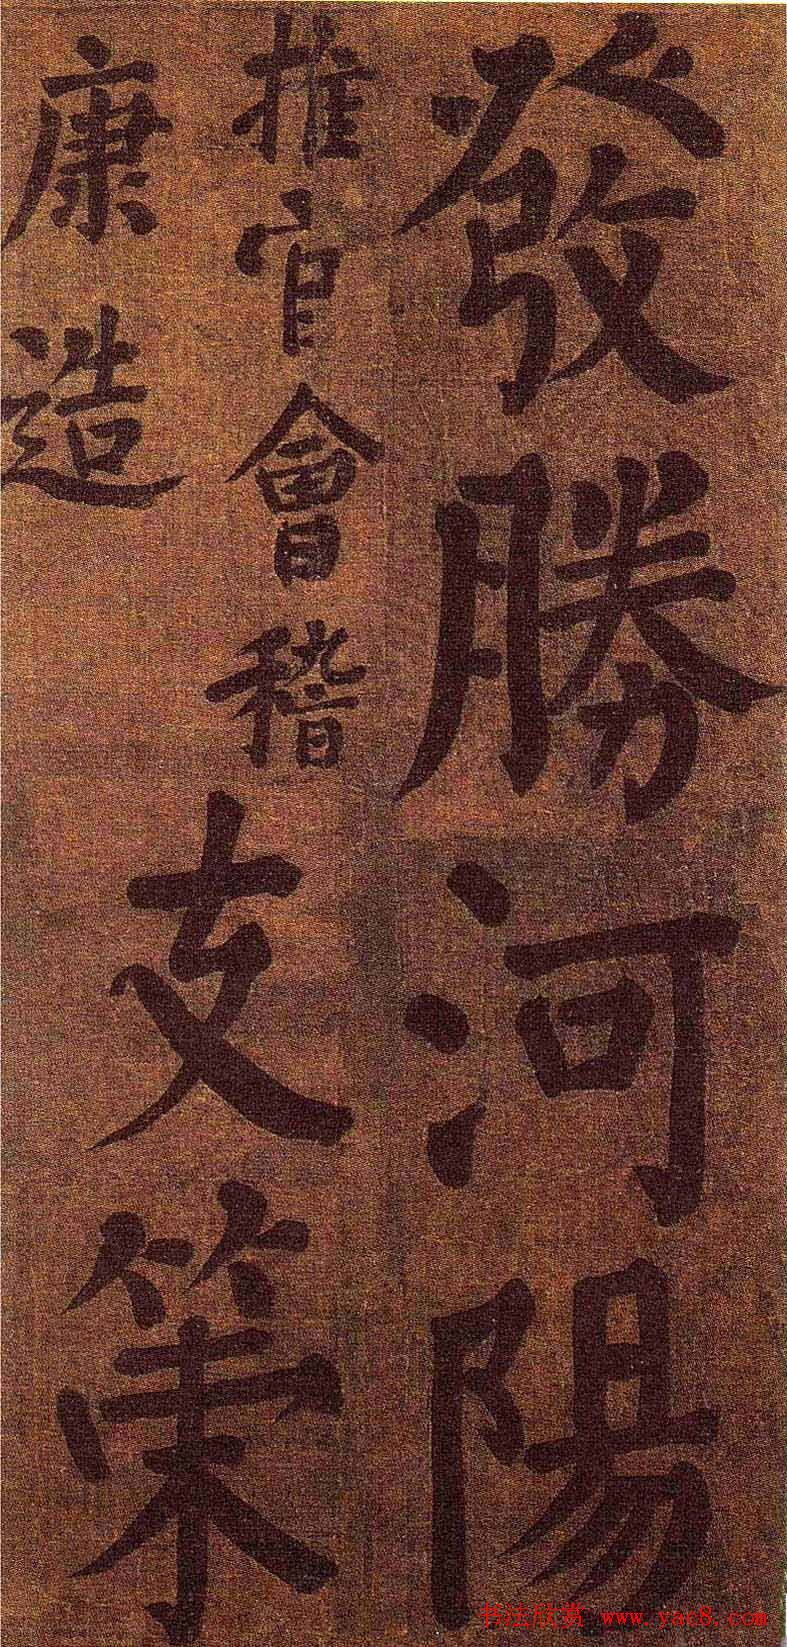 發勝河陽
推官會稽
康造
支策
书法欣赏 www.yac8.com